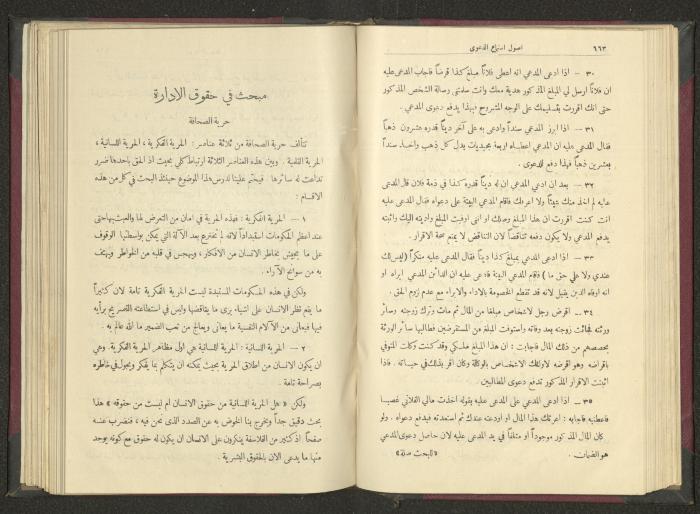 ٦٦٣ اصول استماع الدعوى
٣٠ – اذا ادعى المدعي انه اعطى فلاناً مبلغ كذا قرضاً فاجاب المدعى عليه
ان فلاناً ارسل لي المبلغ المذكور هدية معك وانت سلمتني رسالة الشخص المذكور
حتى انك اقررت بتسليمك على الوجه المشروح فبهذا يدفع دعوى المدعي .
٣١ – اذا ابرز المدعي سنداً وادعى به على آخر ديناً قدره عشرون ذهباً
فقال المدعى عليه ان المدعي اعطاه اربعة مجيديات بدل كل ذهب واخذ سنداً
بعشرين ذهباً فهذا دفع للدعوى .
٣٢ – بعد ان ادعى المدعي ان له ديناً قدره كذا في ذمة فلان قال المدعى
عليه لم اخذ منك شيئاً ولا اعرفك فاقام المدعي البينة على دعواه فقال المدعى عليه
انت كنت اقررت ان هذا المبلغ وصلك او اني اوفيت المبلغ واديته اليك واثبته
يدفع المدعي ولا يكون دفعه تناقضاً لان التناقض لا يمنع صحة الاقرار .
٣٣ – اذا ادعى المدعي بمبلغ كذا ديناً فقال المدعى عليه منكراً (ليس لك
عندي ولا علي حق ما) فاقام المدعي البينة فادعى عليه ان الدائن المدعي ابراه او
انه اوفاه الدين يقبل لانه قد تقطع الخصومة بالاداء والابراء مع عدم لزوم الحق .
٣٤ – اقرض رجل لاشخاص مبلغا من المال ثم مات وترك زوجته وسائر
ورثته فجائت زوجته بعد وفاته واستوفت المبلغ من المستقرضين فطالبها سائر الورثة
بحصصهم من ذلك المال فاجابت : ان هذا المبلغ ملكي وقد كنت وكلت المتوفي
باقراضه وهو اقرضه لاولئك الاشخاص بالوكالة وكان اقر بذلك في حياته . فاذا
اثبتت الاقرار المذكور تدفع دعوى المطالبين .
٣٥ – اذا ادعى المدعي على المدعى عليه بقوله اخذت مالي الفلاني غصبا
فاعطنيه فاجابه : اعرتك هذا المال او اودعته عندك ثم استعدته فيدفع دعواه . ولو
كان المال المذكور موجوداً او متلفاً في يد المدعى عليه لان حاصل دعوى المدعي
هو الضمان . «للبحث صلة»
مبحث في حقوق الادارة
حرية الصحافة
تتألف حرية الصحافة من ثلاثة عناصر : الحرية الفكرية ، الحرية اللسانية ،
الحرية القلمية . وبين هذه العناصر الثلاثة ارتباط كلي بحيث اذ الحق باحدها ضرر
تداعت له سائرها . فيحتم علينا لدرس هذا الموضوع حينئذ البحث في كل من هذه
الاقسام :
١ – الحرية الفكرية : فهذه الحرية في امان من التعرض لها والعبث بها حتى
عند اعظم الحكومات استبداداً لانه لم تخترع بعد الآلة التي يمكن بواسطتها الوقوف
على ما يجيش بخاطر الانسان من الافكار ، ويهجس في قلبه من الخواطر ويهتف
به من سوانح الآراء .
ولكن في هذه الحكومات المستبدة ليست الحرية الفكرية تامة لان كثيراً
ما يقع نظر الانسان على اشياء يرى ما يناقضها وليس في استطاعته التصريح برأيه
فيها فيعاني من الآلام النفسية ما يعانى ويعالج من تعب الضمير ما الله عالم به .
٢ – الحرية اللسانية : الحرية اللسانية هي اول مظاهر الحرية الفكرية . وهي
ان يكون الانسان من اطلاق الحرية بحيث يمكنه ان يتكلم بما يفكر ويجول في خاطره
بصراحة تامة .
ولكن « هل الحرية اللسانية من حقوق الانسان ام ليست من حقوقه » هذا
بحث دقيق جداً ونخرج بنا الخوض به عن الصدد الذى نحن فيه ، فنضرب عنه
صفحاً اذ كثير من الفلاسفة ينكرون على الانسان ان يكون له حقوق مع كونه يوجد
منها ما يدعى الان بالحقوق البشرية .